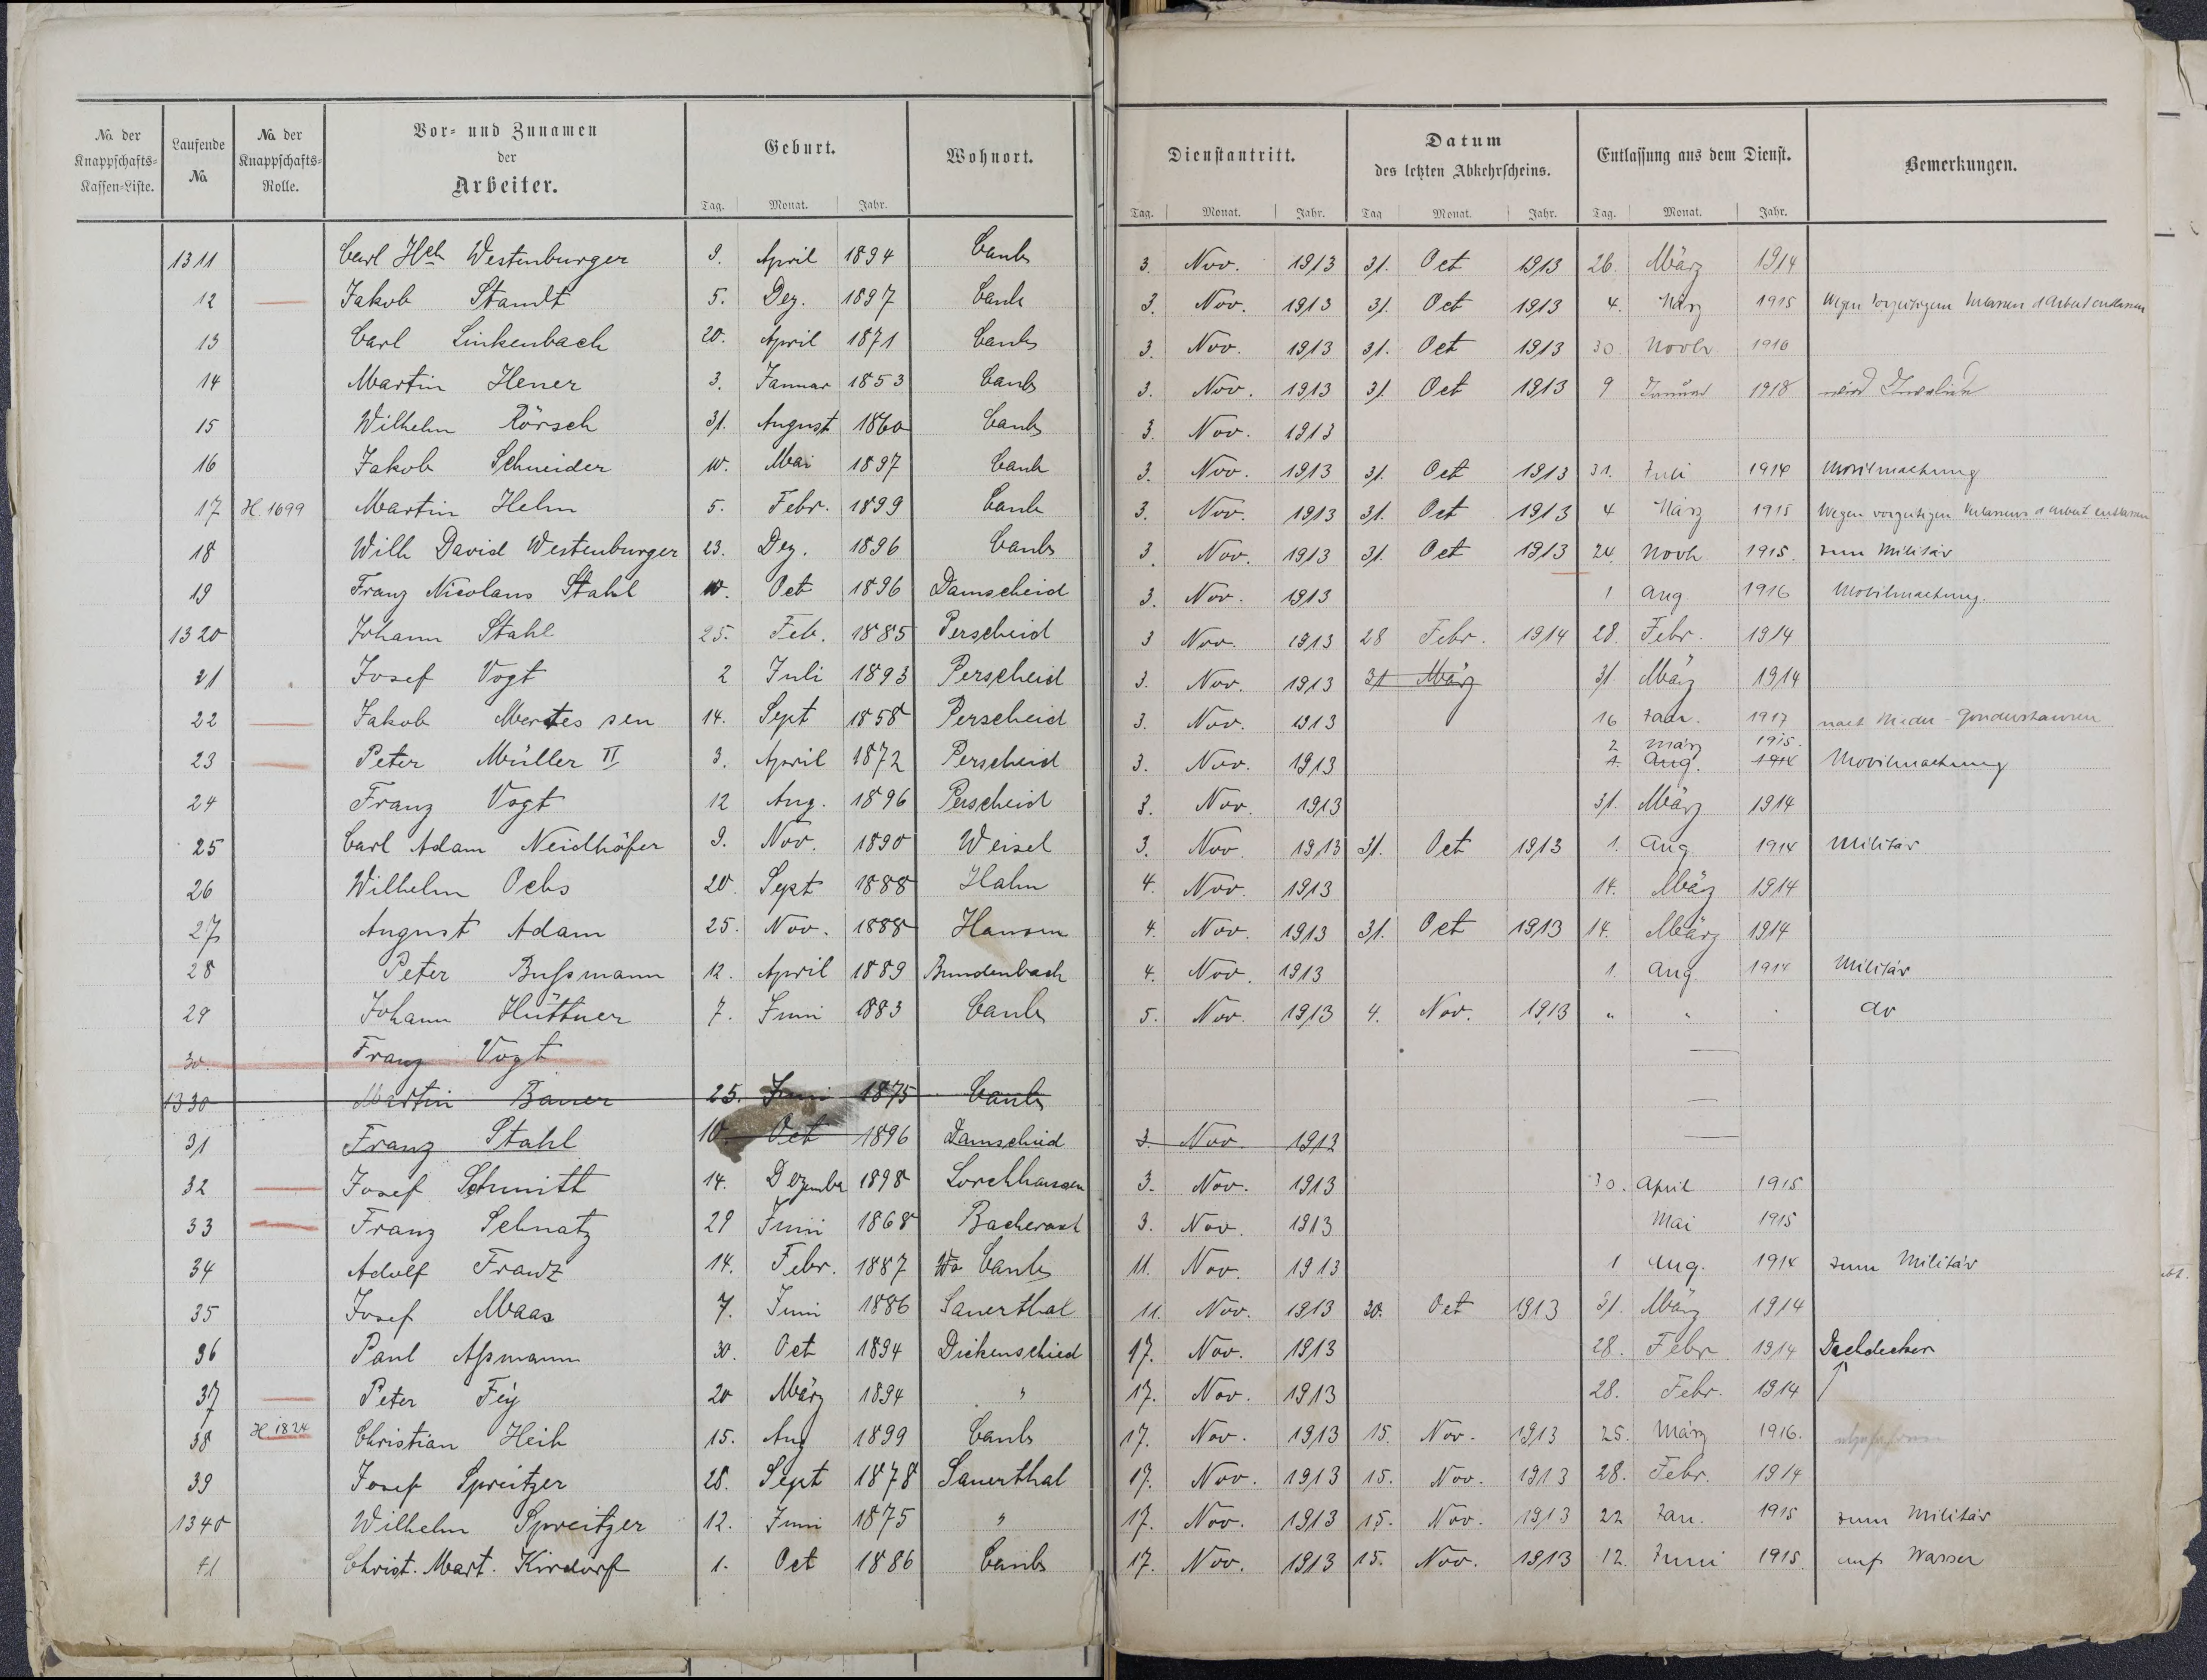 No. der Knappschafts-Kassen-Liste. Laufende No. No. der Knappschafts-Rolle. Vor- und Zunamen der Arbeiter. Geburt. Wohnort. Dienstantritt. Datum des letzten Abkehrscheins. Entlassung aus dem Dienst. Bemerkungen.
Tag. Monat. Jahr. Tag. Monat. Jahr. Tag Monat. Jahr. Tag. Monat. Jahr.
1311 Carl Hch Westenburger 9. April 1894 Caub 3. Nov. 1913 31. Oct 1913 26. März 1914
12 Jakob Staudt 5. Dez. 1897 Caub 3. Nov. 1913 31. Oct 1913 4. März 1915 Wegen vorzeitigem Verlassen d Arbeit entlassen
13 Carl Linkenbach 20. April 1871 Caub 3. Nov. 1913 31. Oct 1913 30 Novbr. 1916
14 Martin Hener 3. Januar 1853 Caub 3. Nov. 1913 31. Oct 1913 9 Januar 1918 wird Invalide
15 Wilhelm Rörsch 31. August 1860 Caub 3. Nov. 1913
16 Jakob Schneider 10. Mai 1897 Caub 3. Nov. 1913 31. Oct 1913 31. Juli 1914 Mobilmachung
17 H. 1699 Martin Helm 5. Febr. 1899 Caub 3. Nov. 1913 31. Oct 1913 4 März 1915 Wegen vorzeitigen Verlassens d Arbeit entlassen
18 Wilh David Westenburger 23. Dez. 1896 Caub 3. Nov. 1913 31. Oct 1913 24. Novb 1915. zum Militär
19 Franz Nicolaus Stahl 10. Oct 1896 Damscheid 3. Nov. 1913 1 Aug 1916 Mobilmachung.
1320 Johann Stahl 25. Feb. 1885 Perscheid 3 Nov. 1913 28 Febr. 1914 28. Febr. 1914
21 Josef Vogt 2 Juli 1893 Perscheid 3. Nov. 1913 31 März 31. März 1914
22 Jakob Mertes sen 14. Sept 1858 Perscheid 3. Nov. 1913 16 Jan. 1917 nach Gondershausen
2 März 1915.
23 Peter Müller II 3. April 1872 Perscheid 3. Nov. 1913 1. Aug. 1914 Mobilmachung
24 Franz Vogt 12 Aug. 1896 Perscheid 3. Nov. 1913 31. März 1914
25 Carl Adam Neidhöfer 9. Nov. 1890 Weisel 3. Nov. 1913 31. Oct 1913 1. Aug. 1914 Militär
26 Wilhelm Ochs 20. Sept 1888 Hahn 4. Nov. 1913 14. März 1914
27 August Adam 25. Nov. 1888 Hausen 4. Nov. 1913 31. Oct 1913 14. März 1914
28 Peter Bußmann 12. April 1889 Bundenbach 4. Nov. 1913 1. Aug. 1914 Militär
29 Johann Hüttner 7. Juni 1883 Caub 5. Nov. 1913 4. Nov. 1913 " " " do
30. Franz Vogt —
1330 Martin Bauer 25. Juni 1875 Caub —
31 Franz Stahl 10. Oct 1896 Damscheid 3. Nov. 1913 —
32 Josef Schmitt 14. Dezember 1898 Lorchhausen 3. Nov. 1913 30. April 1915
33 Franz Schnatz 29 Juni 1868 Bacharach 3. Nov. 1913 Mai 1915
34 Adolf Franz 14. Febr. 1887 Caub 11. Nov. 1913 1 Aug. 1914 zum Militär
35 Josef Maas 7. Juni 1886 Sauerthal 11. Nov. 1913 20. Oct 1913 31. März 1914
36 Paul Aßmann 30. Oct 1894 Dickenschied 17. Nov. 1913 28. Febr 1914 Dachdecker
37 Peter Fey 20 März 1894 " 17. Nov. 1913 28. Febr. 1914
38 H. 1824 Christian Heib 15. Aug 1899 Caub 17. Nov. 1913 15. Nov. 1913 25. März 1916.
39 Josef Spreitzer 28. Sept 1878 Sauerthal 17. Nov. 1913 15. Nov. 1913 28. Febr. 1914
1340 Wilhelm Spreitzer 12. Juni 1875 " 17. Nov. 1913 15. Nov. 1913 22 Jan. 1915 zum Militär
41 Christ. Mart. Kirdorf 1. Oct 1886 Caub 17. Nov. 1913 15. Nov. 1913 12. Juni 1915. auf Wasser